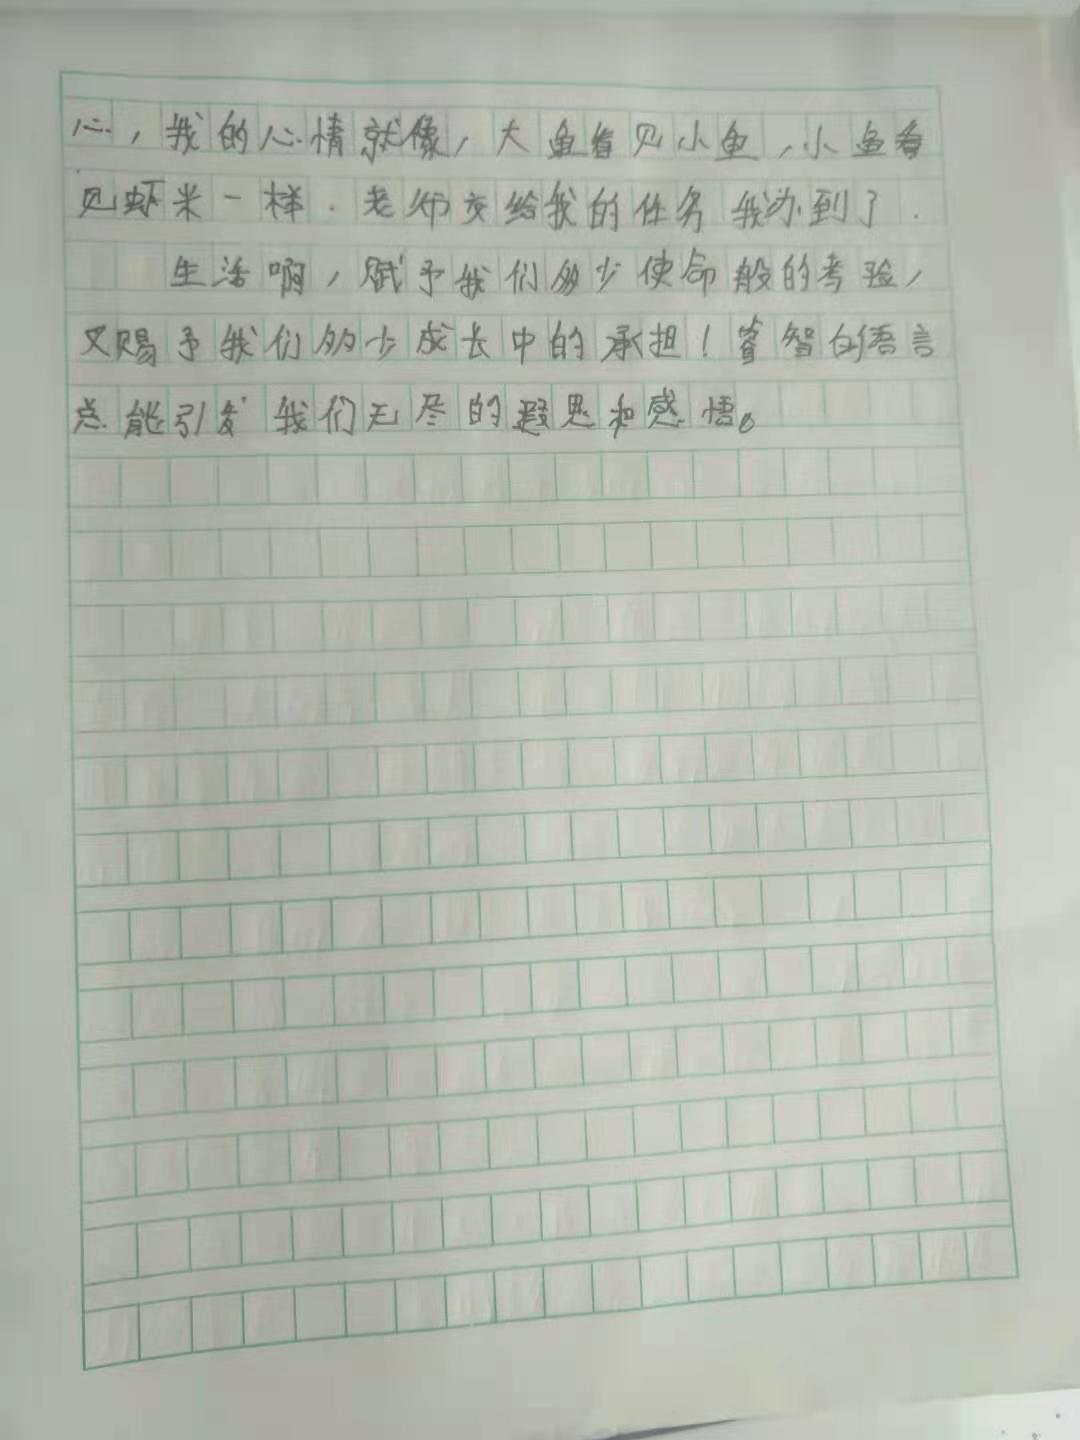 心，我的心情就像，大鱼看见小鱼，小鱼看
见虾米一样．老师交给我的任务我办到了．
生活啊，赋予我们多少使命般的考验，
又赐予我们多少成长中的承担！睿智的语言
总能引发我们无尽的遐思和感悟。